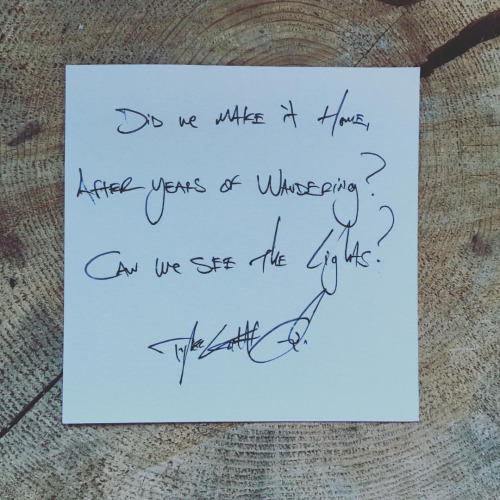 Did we make it Home,
After years of Wandering?
Can we see the Lights?